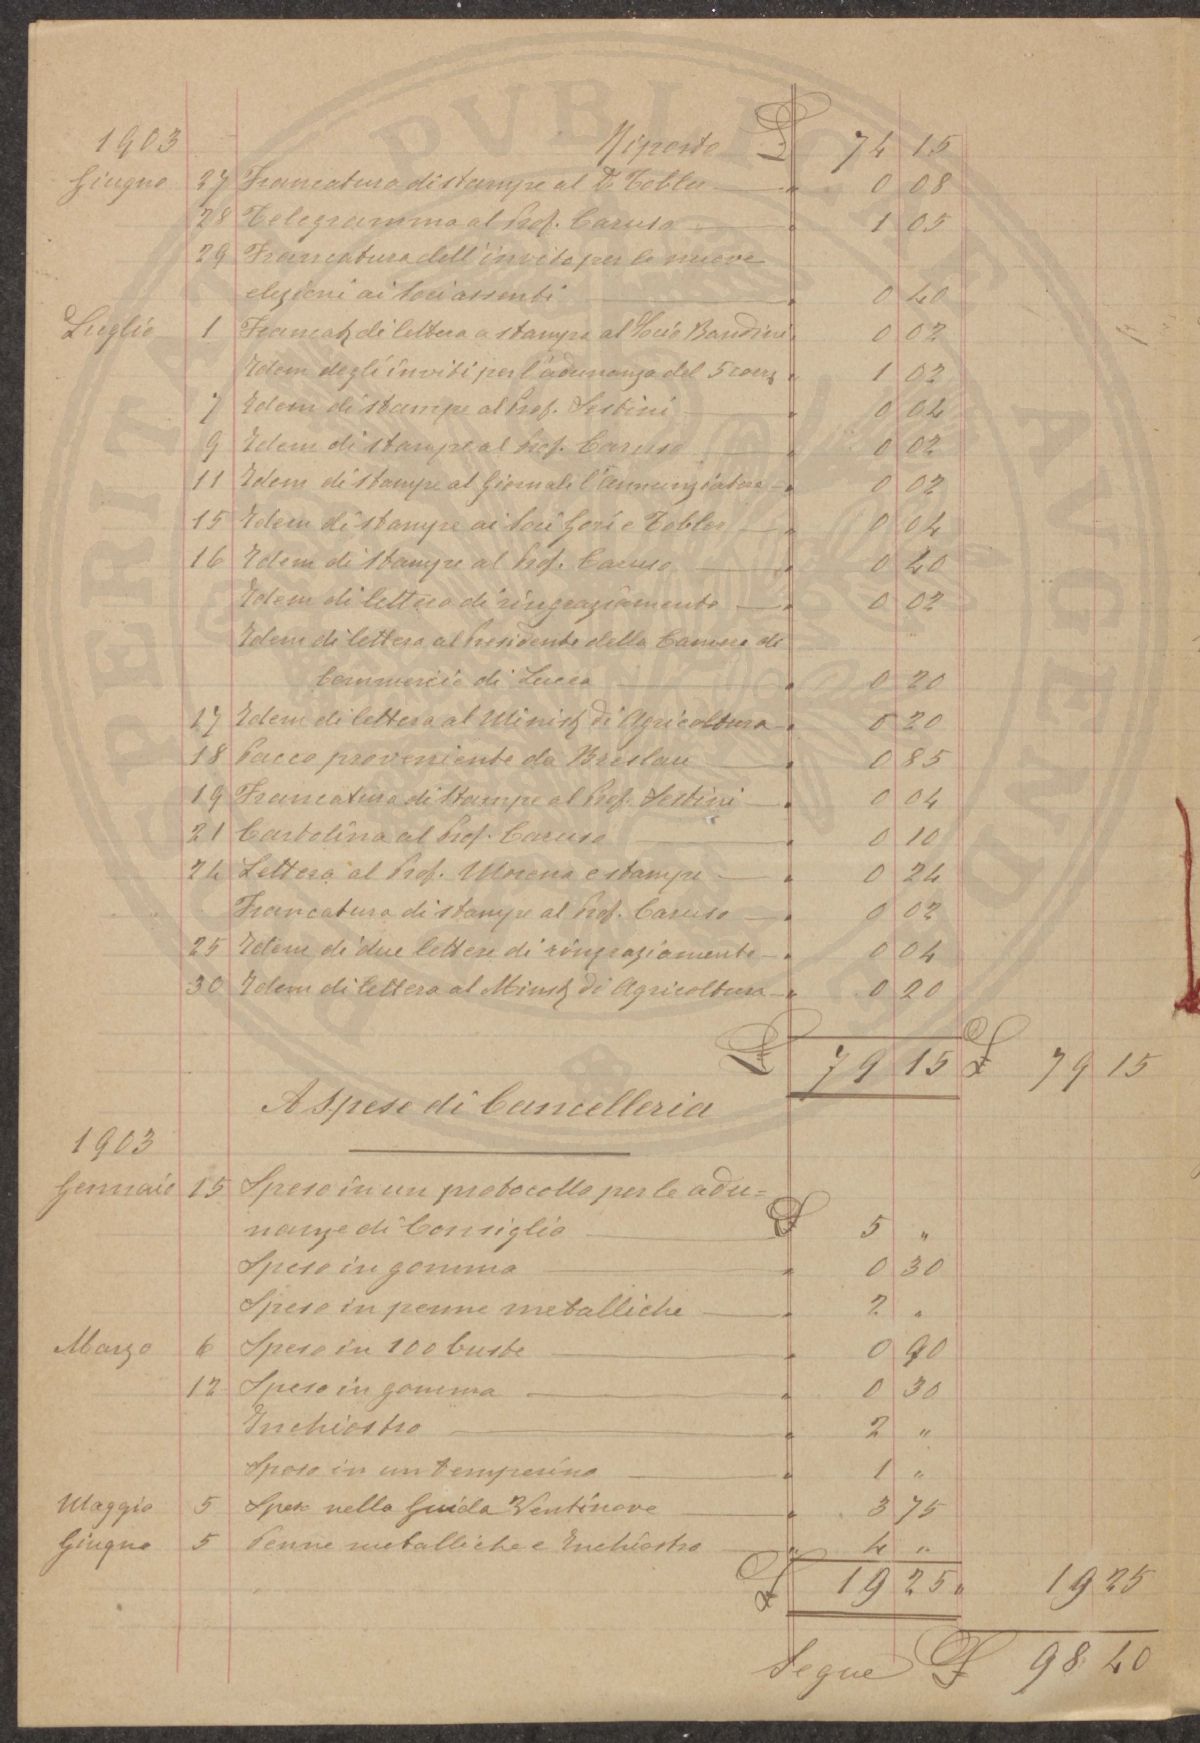 PROSPERITATI PVBLICAE AVGENDAE
1903 Riporto £ 74 15
Giugno 27 Francatura di stampe al D. Tobler " 0 08
28 Telegramma al Prof. Caruso " 1 05
29 Francatura dell'invito per le nuove
elezioni ai Soci assenti " 0 40
Luglio 1 Francat. di lettera a stampa al Socio Bandini " 0 02
Idem degli inviti per l'adunanza del 5 corr. " 1 02
7 Idem di stampe al Prof. Sestini " 0 04
9 Idem di stampe al Prof. Caruso " 0 02
11 Idem di stampe al Giornale l'Annunziatore " 0 02
15 Idem di stampe ai Soci Gori e Tobler " 0 04
16 Idem di stampe al Prof. Caruso " 0 40
Idem di lettera di ringraziamento " 0 02
Idem di lettera al Presidente della Camera di
Commercio di Lucca " 0 20
17 Idem di lettera al Minist. di Agricoltura " 0 20
18 Pacco proveniente da Breslau " 0 85
19 Francatura di stampe al Prof. Sestini " 0 04
21 Cartolina al Prof. Caruso " 0 10
24 Lettera al Prof. Morena e stampe " 0 24
Francatura di stampe al Prof. Caruso " 0 02
25 Idem di due lettere di ringraziamento " 0 04
30 Idem di lettera al Minist. di Agricoltura " 0 20
£ 79 15 £ 79 15
A Spese di Cancelleria
1903
Gennaio 15 Speso in un protocollo per le adu=
nanze di Consiglio £ 5 "
Speso in gomma " 0 30
Speso in penne metalliche " 2 "
Marzo 6 Speso in 100 buste " 0 90
12 Speso in gomma " 0 30
Inchiostro " 2 "
Speso in un temperino " 1 "
Maggio 5 Speso nella Guida Ventinove " 3 75
Giugno 5 Penne metalliche e Inchiostro " 4 "
£ 19 25 " 19 25
Segue £ 98 40